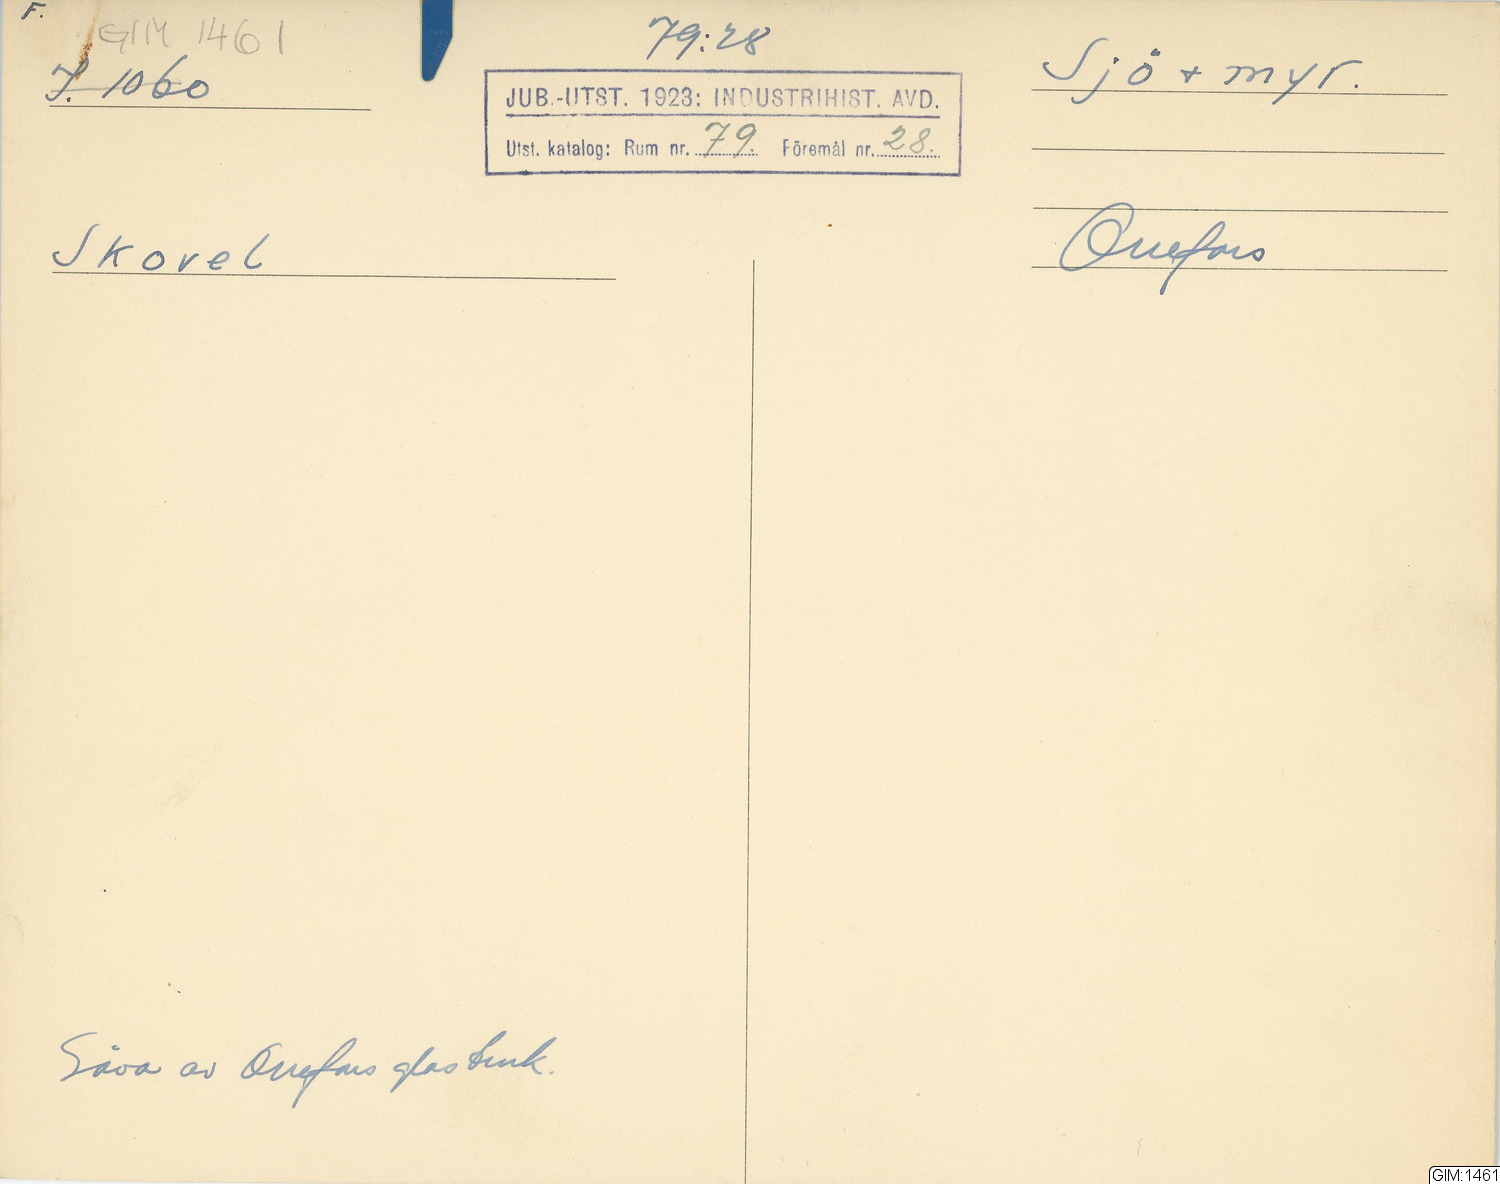 F.
GIM 1461
79:28
J. 1060
Sjö + myr.
JUB.-UTST. 1923: INDUSTRIHIST. AVD.
Utst. katalog: Rum nr. 79. Föremål nr. 28.
Skovel
Orrefors
Gåva av Orrefors glasbruk.
GIM:1461